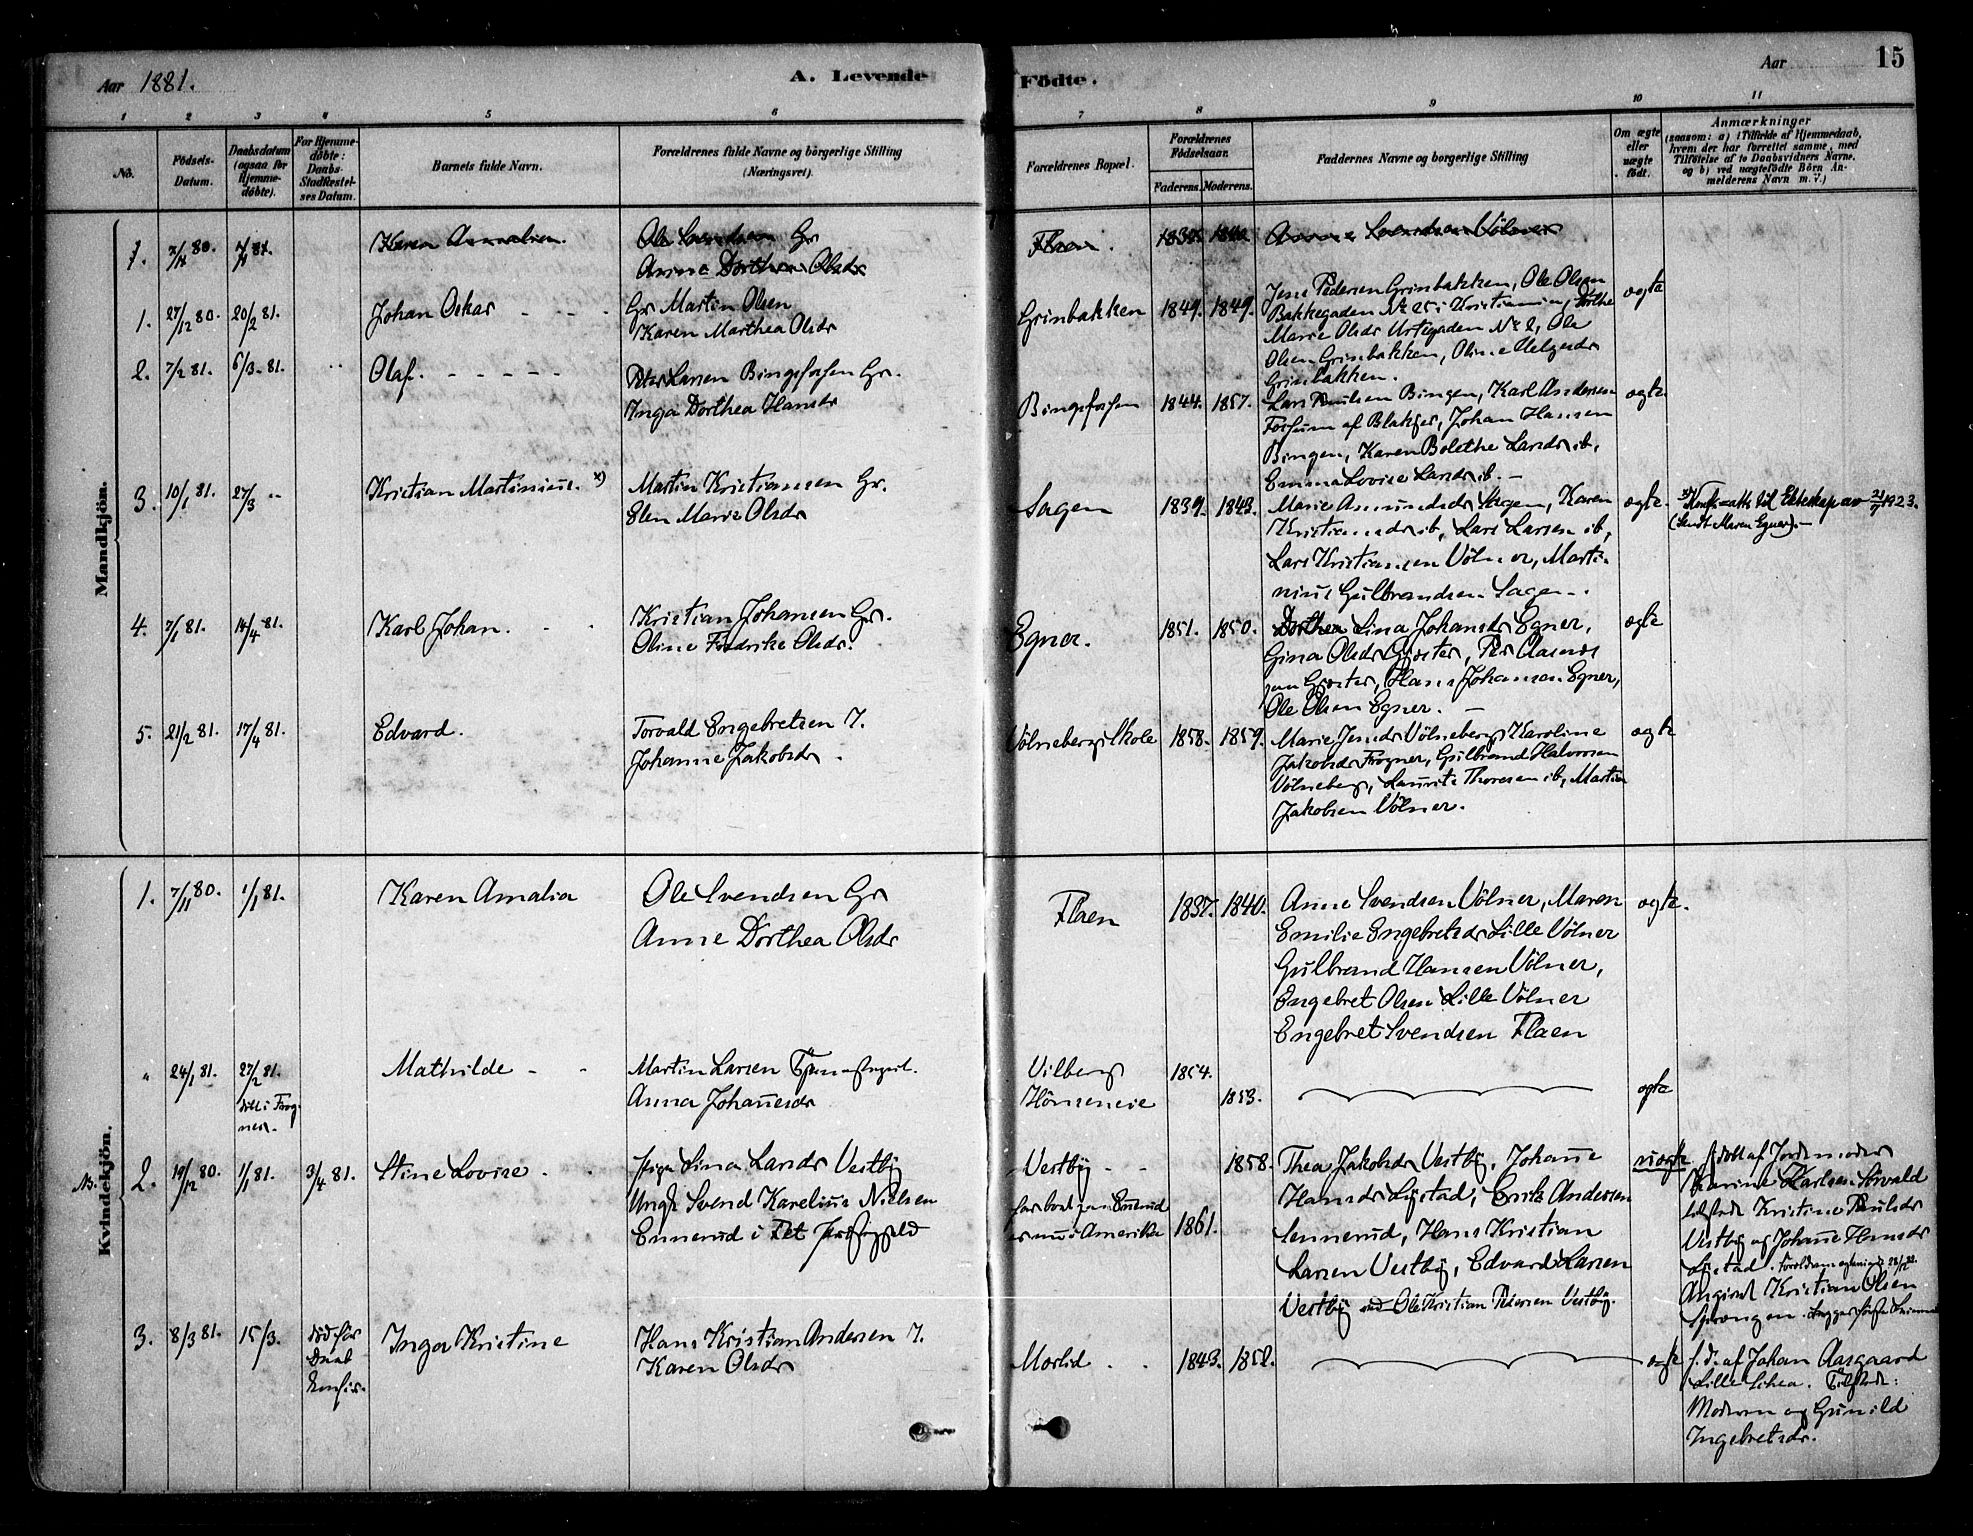 Aar 1881.
A. Levende
Födte.
Aar
15
1 2 3 4 5 6 7 8 9 10 11
No.
Födsels-
Datum.
Daabsdatum
(ogsaa for
Hjemme-
döbte).
For Hjemme-
döbte:
Daabs-
Stadfæstel-
ses Datum.
Barnets fulde Navn.
Forældrenes fulde Navne og börgerlige Stilling
(Næringsvei).
Forældrenes Bopæl.
Forældrenes
Födselsaar.
Faderens. Moderens.
Faddernes Navne og borgerlige Stilling
Om ægte
eller
uægte
födt.
Anmærkninger
(saasom: a) i Tilfælde af Hjemmedaab,
hvem der har forrettet samme, med
Tilföielse af to Daabsvidners Navne.
og b) ved uægtefödte Börn An-
melderens Navn m. V.)
Mandkjön.
1. 7/11 80. 1/1 81. Karen Amalia. Ole Svendsen Gr
Anne Dorthea Olsdr
Flaen. 1837. 1840 Anne Svendsen Völner
1. 27/12 80. 20/2 81. Johan Oskar Gr Martin Olsen
Karen Marthea Olsdr
Grinbakken 1849. 1849. ægte
Jens Pedersen Grinbakken, Ole Olsen
Bakkegaden No 25 i Kristiania,
Marie Olsdr Urtegaden No 2, Ole
Olsen Grinbakken, Oline Helgesdr
Grinbakken.
2. 7/2 81. 6/3 81. Olaf. Peter Larsen Bingsfossen Gr.
Inga Dorthea Hansdr
Bingsfossen 1844. 1857. ægte
Lars Paulsen Bingen, Karl Andersen
Fossum af Blakjer, Johan Hansen
Bingen, Karen Bolethe Larsdr ib,
Emma Lovise Larsdr ib. –
3. 10/1 81. 27/3 Kristian Martinius. x) Martin Kristiansen Gr.
Elen Marie Olsdr
Sagen 1839. 1843. ægte.
Marie Amundsdr Sagen, Karen
Kristiansdr ib, Lars Larsen ib,
Lars Kristiansen Völner, Marti-
nius Gulbrandsen Sagen.
x) Konf.-att. til Ekteskap av 21/7 1923.
(Sendt Maren Egner). –
4. 7/1 81. 14/4 81. Karl Johan. Kristian Johansen Gr.
Oline Fredrike Olsdr.
Egner. 1851. 1850. ægte
Dorthea Lina Johansdr Egner,
Gina Olsdr Gjoster, Per Rasmus-
sen Groster, Hans Johansen Egner,
Ole Olsen Egner. –
5. 21/2 81. 17/4 81. Edvard. Torvald Engebretsen I.
Johanne Jakobsdr.
Völneberg Skole 1858. 1859. ægte
Marie Jensdr Völneberg, Karoline
Jakobsdr Frogner, Gulbrand Halvorsen
Völneberg, Laurits Thoresen ib, Martin
Jakobsen Völner.
Kvindekjön.
1. 7/11 80. 1/1 81. Karen Amalia Ole Svendsen Gr
Anne Dorthea Olsdr
Flaen 1837. 1840. ægte.
Anne Svendsen Völner, Maren
Emilie Engebretsdr Lille Völner
Gulbrand Hansen Völner,
Engebret Olsen Lille Völner
Engebret Svendsen Flaen
" 24/1 81. 27/2 81. Mathilde Martin Larsen
döbt i Frog-
ner.
Anna Johannesdr
Vilberg 1854.
Hönseneie 1853. ægte
No. 2. 19/12 80. 1/1 81. 3/4 81. Stine Lovise Pige Lina Larsdr Vestby
Ungk Svend Karelius Nielsen
Ennerud i Fet Præstegjeld
Vestby 1858.
far bort fra Ennerud
er nu i Amerika 1861.
Thea Jakobsdr Vestby, Johanne
Hansdr Lystad, Erik Andersen
Sennerud, Hans Kristian
Larsen Vestby, Edvard Larsen
Vestby Ole Kristian Pedersen Vestby.
uægte
hjdöbt af Jordemoder
Karine Karlsen Sörvald
tilstede Kristine Paulsdr
Vestby og Johanne Hansdr
Lystad.
Angivet Kristian Olsen
3. 8/3 81. 15/3. död för
Daab
Konfir.
Inga Kristine Hans Kristian Andersen I.
Karen Olsdr
Morlid 1843. 1852. ægte
h.d. af Johan Aasgaard
Lille Lihea. Tilstede:
Moderen og Gunild
Ingebretsdr.